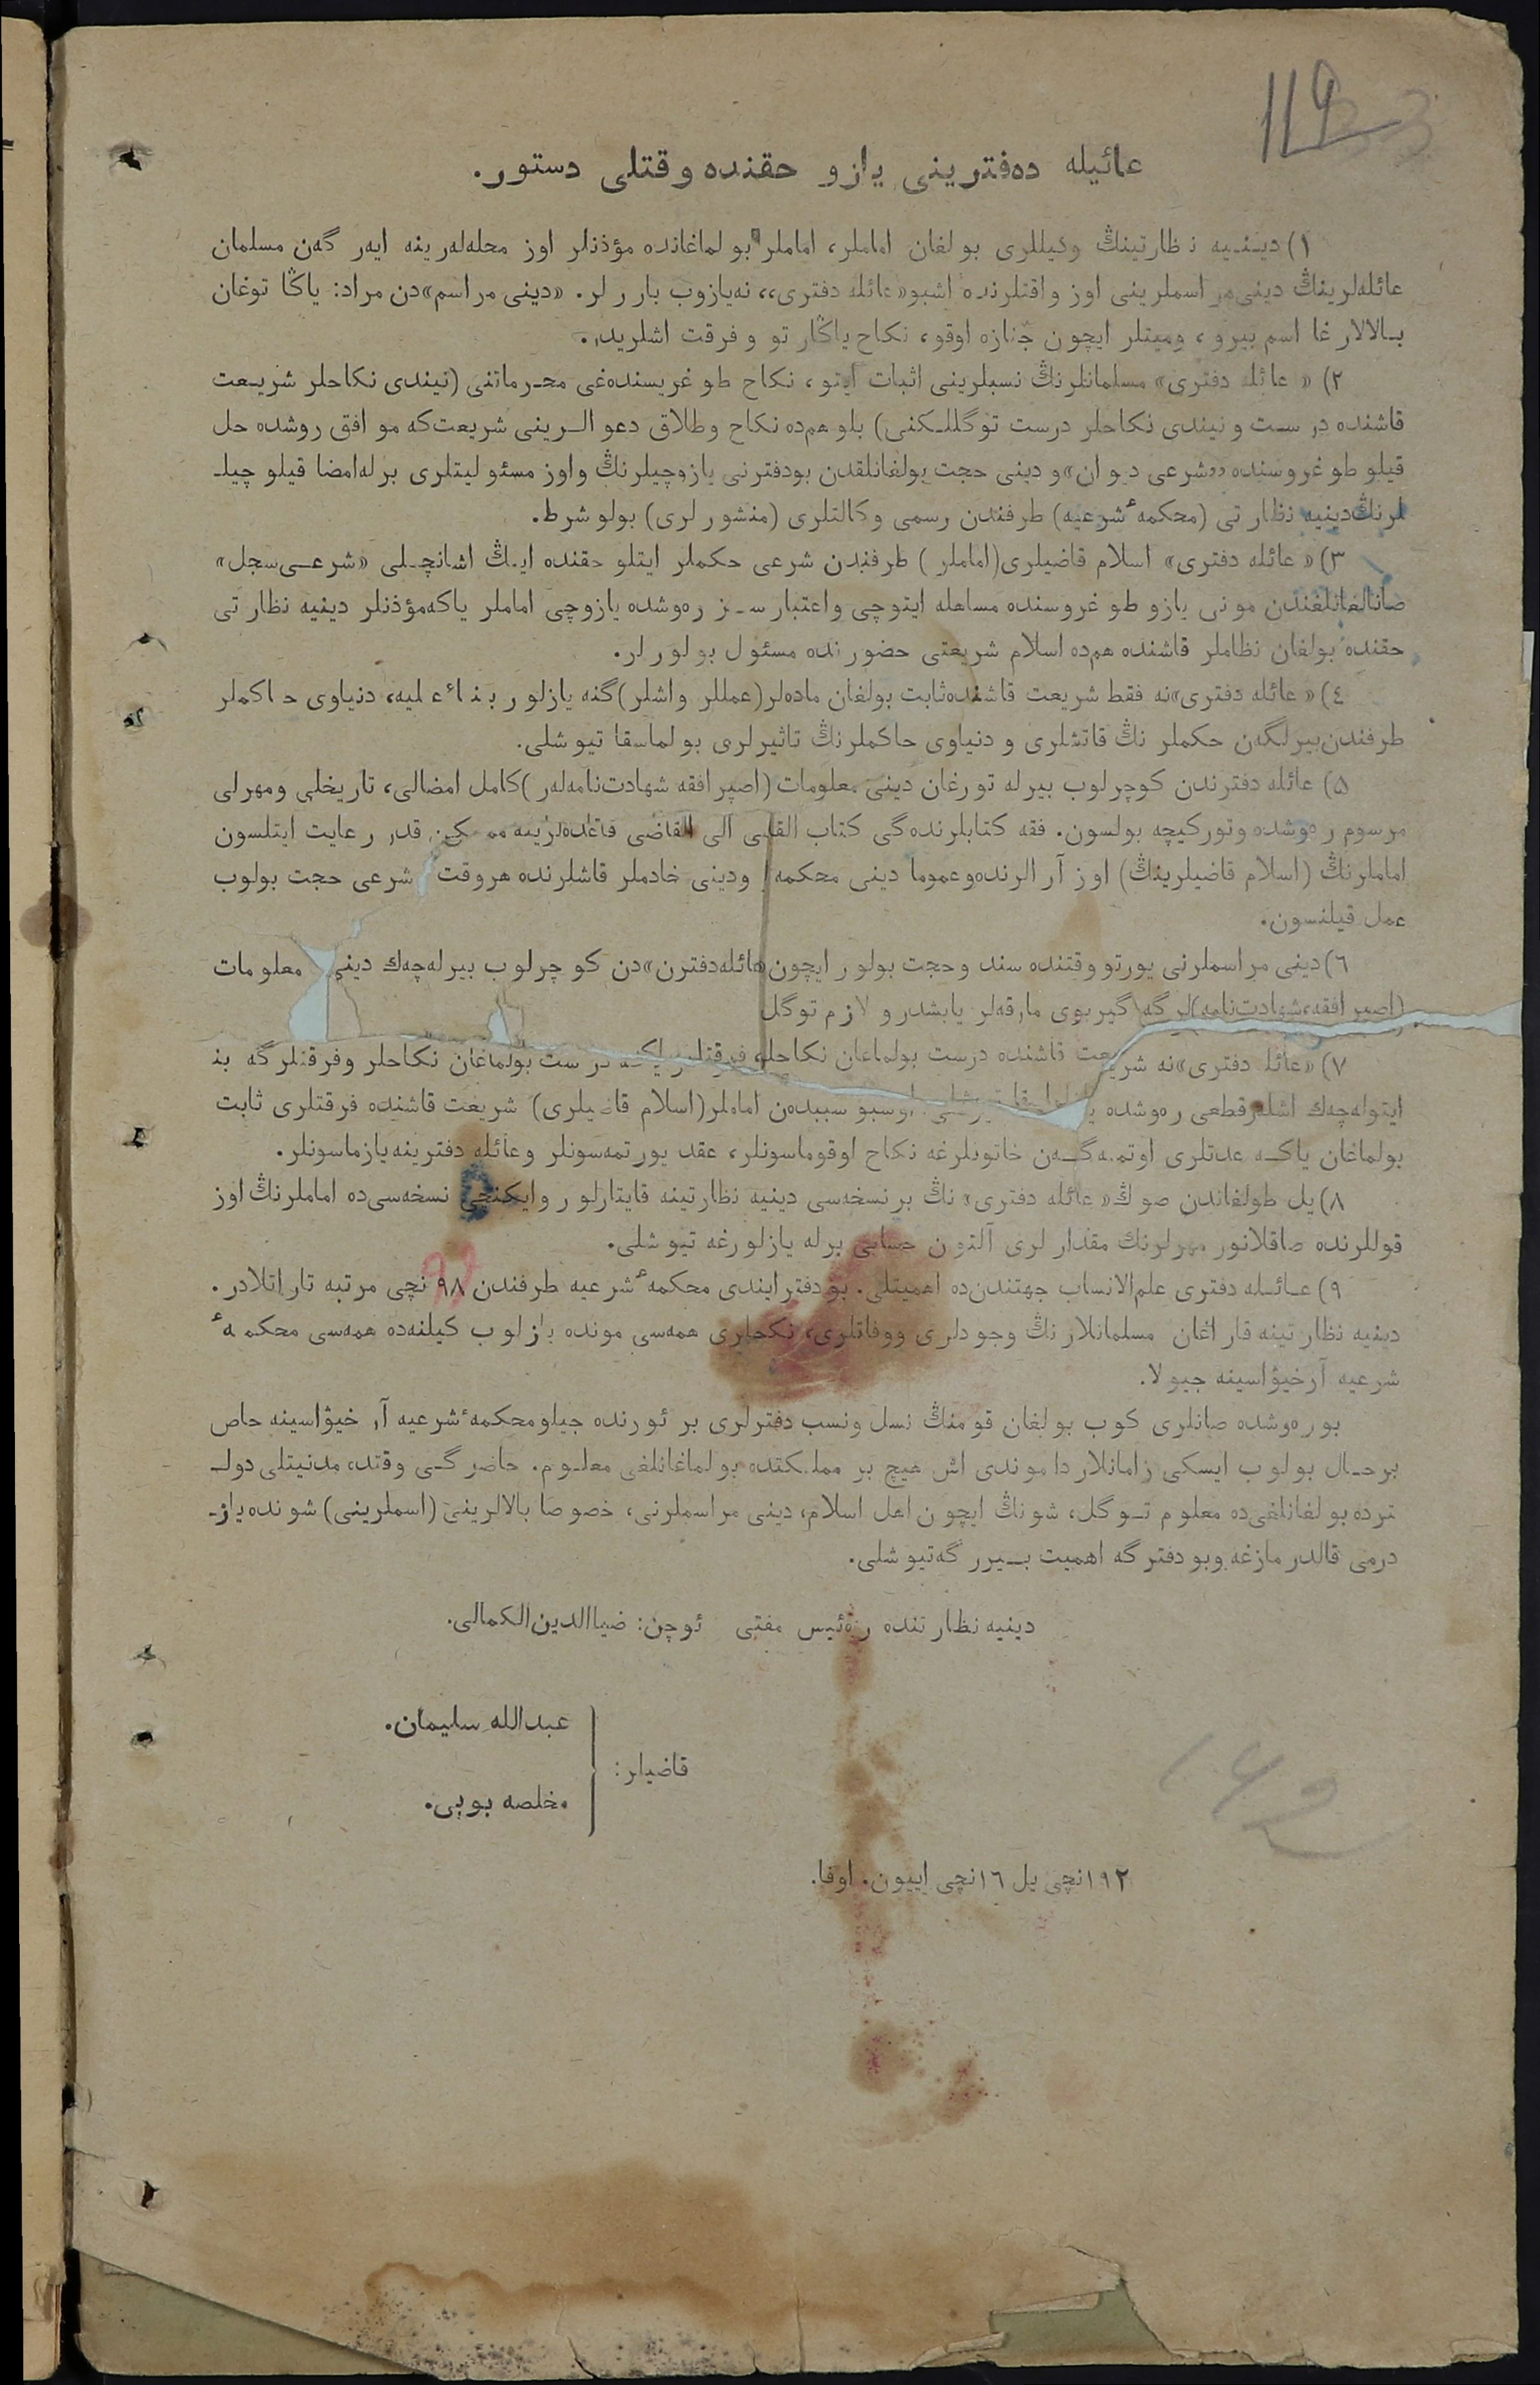 119
عائیله دەفترینی یازو حقنده وقتلی دستور.
۱) دینـیه نظارتینڭ وکیللری بولغان اماملر، اماملر بولماغانده مؤذنلر اوز محله‌لەرینه ایەر گەن مسلمان
عائله‌لرینڭ دینی مراسملرینی اوز واقتلرنده اشبو «عائله دفتری»، نه‌یازوب بار ر لر. «دینی مراسم» دن مراد: یاڭا توغان
بـالالار غا اسم بیرو، ومیتلر ایچون جنازه اوقو، نکاح یاڭار تو و فرقت اشلریدر.
۲) «عائله دفتری» مسلمانلرنڭ نسبلرینی اثبات ایتو، نکاح طوغریسنده‌غی محـرماتنی (نیندی نکاحلر شریـعت
قاشنده درسـت ونیندی نکاحلر درست توگللـکنی) بلو هم‌ده نکاح وطلاق دعوالـرینی شریعت‌که موافق روشده حل
قیلو طوغروسنده «شرعی دیوان» و دینی حجت بولغانلقدن بودفترنی یازوچیلرنڭ واوز مسئولیتلری برله‌امضا قیلو چیلـ
لرنڭ‌دینیه نظارتی (محکمهٔ شرعیه) طرفندن رسمی وکالتلری (منشورلری) بولو شرط.
۳) «عائله دفتری» اسلام قاضیلری (اماملر) طرفندن شرعی حکملر ایتلو حقنده ایـڭ اشانچـلی «شرعـی‌سجل»
صانالغانلغندن مونی یازو طوغروسنده مساهله ایتوچی واعتبار سـز رەوشده یازوچی اماملر یاکه‌مؤذنلر دینیه نظارتی
حقنده بولغان نظاملر قاشنده هم‌ده اسلام شریعتی حضورنده مسئول بولورلر.
٤) «عائله دفتری» نه فقط شریعت قاشنده‌ثابت بولغان ماده‌لر (عمللر واشلر) گنه یازلور بناءً علیه، دنیاوی حاکملر
طرفندن‌بیرلگەن حکملر نڭ قاتشلری و دنیاوی حاکملرنڭ تاثیرلری بولماسقا تیوشلی.
۵) عائله دفترندن کوچرلوب بیرله تورغان دینی معلومات (اصپرافقه شهادت‌نامه‌لەر) کامل امضالی، تاریخلی ومهرلی
مرسوم رەوشده وتورکیچه بولسون. فقه کتابلرنده‌گی کتاب القاضی الی القاضی قاعده‌لرینه ممکن قدر رعایت ایتلسون
اماملرنڭ (اسلام قاضیلرینڭ) اوز آرالرنده‌وعموما دینی محکمه ودینی خادملر قاشلرنده هروقت شرعی حجت بولوب
عمل قیلنسون.
٦) دینی مراسملرنی یورتو وقتنده سند وحجت بولور ایچون «عائله‌دفترن» دن کوچرلوب بیرله‌چەك دینی معلومات
(اصپرافقه، شهادت‌نامه) لرگه گیربوی مارقه‌لر یابشدرو لازم توگل
۷) «عائله دفتری» نه شریعت قاشنده درست بولماغان نکاحلر، فرقتلر یاکه درست بولماغان نکاحلر وفرقتلرگه بنا
ایتوله‌چەك اشلر قطعی رەوشده یازلماسقا تیوشلی. اوشبو سببدەن اماملر (اسلام قاضیلری) شریعت قاشنده فرقتلری ثابت
بولماغان یاکـه عدتلری اوتمـه‌گـەن خاتونلرغه نکاح اوقوماسونلر، عقد یورتمه‌سونلر وعائله دفترینه‌یازماسونلر.
۸) یل طولغاندن صوڭ «عائله دفتری» نڭ برنسخه‌سی دینیه نظارتینه قایتارلور وایکنچی نسخه‌سی‌ده اماملرنڭ اوز
قوللرنده صاقلانور مهرلرنڭ مقدارلری آلتون حسابی برله یازلورغه تیوشلی.
۹) عـائـله دفتری علم‌الانساب جهتندن‌ده اهمیتلی. بو دفتر ایندی محکمهٔ شرعیه طرفندن ۹۸ نچی مرتبه تاراتلادر.
دینیه نظارتینه قاراغان مسلمانلارنڭ وجودلری ووفاتلری، نکحلری همه‌سی مونده یازلوب کیلنه‌ده همه‌سی محکمهٔ
شرعیه آرخیۋاسینه جیولا.
بورەوشده صانلری کوب بولغان قومنڭ نسل ونسب دفترلری بر ئورنده جیلومحکمهٔ شرعیه آر خیۋاسینه خاص
برحـال بولوب ایسکی زامانلاردا موندی اش هیچ بر مملـکتده بولماغانلغی معلـوم. حاضرگـی وقتده مدنیتلی دولـ
تردە بولغانلغی‌ده معلوم تـوگل، شونڭ ایچون اهل اسلام، دینی مراسملرنی، خصوصا بالالرینی (اسملرینی) شونده‌یازـ
درمی قالدرمازغه وبودفترگه اهمیت بـیررگه‌تیوشلی.
دینیه نظارتنده رەئیس مفتی ئوچن: ضیاالدین‌الکمالی.
عبدالله سلیمان.
قاضیلر:
مخلصه بوبی.
۱۹۲نچی یل ۱٦نچی اییون. اوفا.